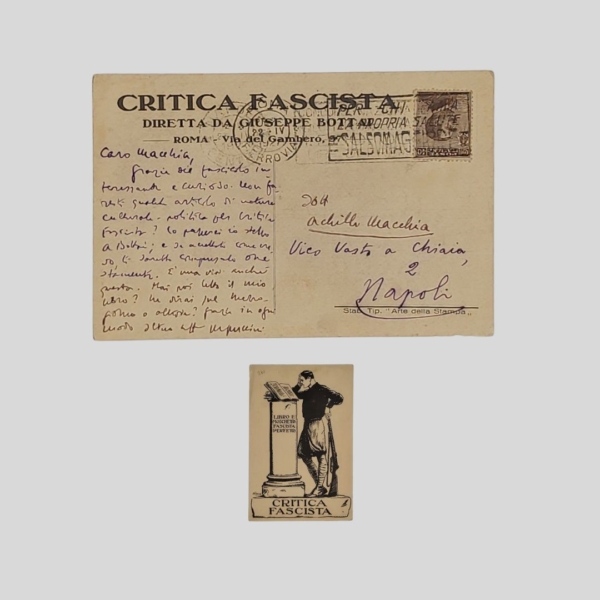 CRITICA FASCISTA
DIRETTA DA GIUSEPPE BOTTAI
ROMA - Via del Gambero, 37
22 · IV
FERROVIA
PER CHI
LA PROPRIA SALUTE
SALSOMAG
Caro Macchia,
Grazie del fascicolo in-
teressante e curioso. Non fa-
resti qualche articolo di natura
culturale-politica per Critica
fascista? Lo passerei io stesso
a Bottai; e se accettato come cre-
do, ti sarebbe compensato one-
stamente. È una via anche
questa. Hai poi letto il mio
libro? Ne dirai sul
o altrove? Grazie in ogni
modo aff
Dott
Achille Macchia
Vico Vasto a Chiaia,
2
Napoli
Stab. Tip. "Arte della Stampa"
LIBRO E
MOSCHETTO
FASCISTA
PERFETTO
CRITICA
FASCISTA